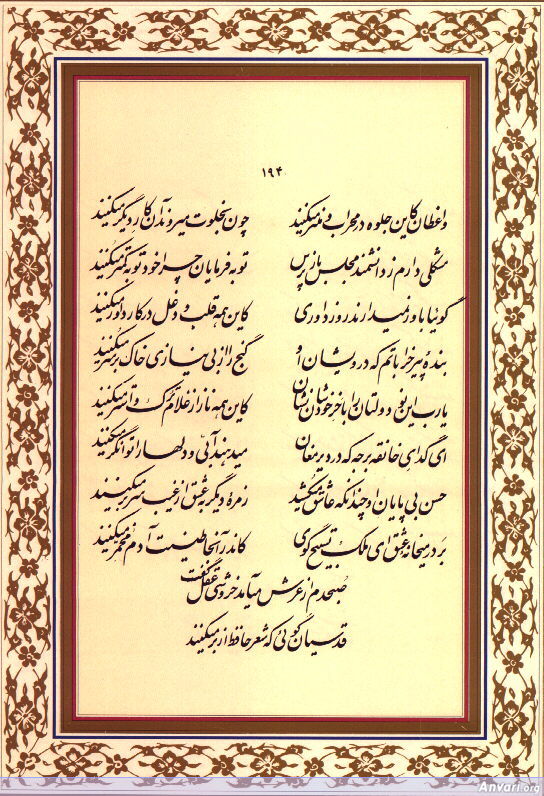 ۱۹۴
واعظان کاین جلوه در محراب و منبر میکنند چون بخلوت میروند آن کار دیگر میکنند
مشکلی دارم ز دانشمند مجلس بازپرس توبه فرمایان چرا خود توبه کمتر میکنند
گوئیا باور نمیدارند روز داوری کاین همه قلب و دغل در کار داور میکنند
بندهٔ پیر خراباتم که درویشان او گنج را از بی نیازی خاک بر سر میکنند
یارب این نودولتان را با خر خودشان نشان کاین همه ناز از غلام ترک و استر میکنند
ای گدای خانقه برجه که در دیر مغان میدهند آبی و دلها را توانگر میکنند
حسن بی پایان او چندانکه عاشق میکشد زمرهٔ دیگر بعشق از غیب سر بر میکنند
بر در میخانهٔ عشق ای ملک تسبیح گوی کاندر آنجا طینت آدم مخمر میکنند
صبحدم از عرش میآمد خروشی عقل گفت
قدسیان گوئی که شعر حافظ از بر میکنند
Anvari.org